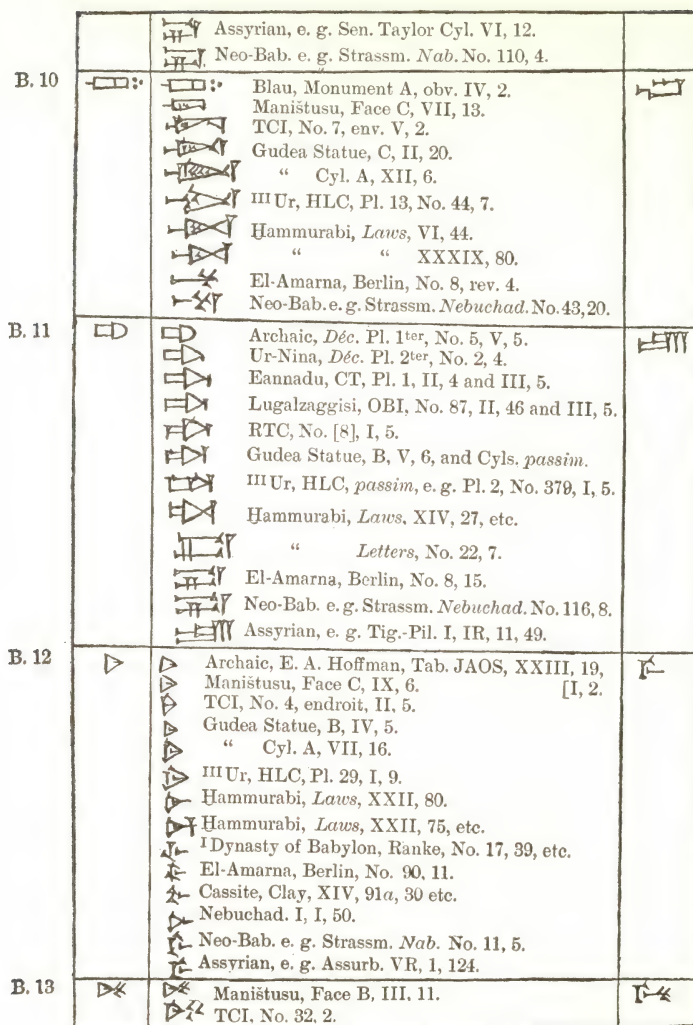 Assyrian, e. g. Sen. Taylor Cyl. VI, 12.
Neo-Bab. e. g. Strassm. Nab. No. 110, 4.
B. 10 Blau, Monument A, obv. IV, 2.
Maništusu, Face C, VII, 13.
TCI, No. 7, env. V, 2.
Gudea Statue, C, II, 20.
“ Cyl. A, XII, 6.
III Ur, HLC, Pl. 13, No. 44, 7.
Ḫammurabi, Laws, VI, 44.
“ “ XXXIX, 80.
El-Amarna, Berlin, No. 8, rev. 4.
Neo-Bab. e. g. Strassm. Nebuchad. No. 43, 20.
B. 11 Archaic, Déc. Pl. 1ter, No. 5, V, 5.
Ur-Nina, Déc. Pl. 2ter, No. 2, 4.
Eannadu, CT, Pl. 1, II, 4 and III, 5.
Lugalzaggisi, OBI, No. 87, II, 46 and III, 5.
RTC, No. [8], I, 5.
Gudea Statue, B, V, 6, and Cyls. passim.
III Ur, HLC, passim, e. g. Pl. 2, No. 379, I, 5.
Ḫammurabi, Laws, XIV, 27, etc.
“ Letters, No. 22, 7.
El-Amarna, Berlin, No. 8, 15.
Neo-Bab. e. g. Strassm. Nebuchad. No. 116, 8.
Assyrian, e. g. Tig.-Pil. I, IR, 11, 49.
B. 12 Archaic, E. A. Hoffman, Tab. JAOS, XXIII, 19,
Maništusu, Face C, IX, 6. [I, 2.
TCI, No. 4, endroit, II, 5.
Gudea Statue, B, IV, 5.
“ Cyl. A, VII, 16.
III Ur, HLC, Pl. 29, I, 9.
Ḫammurabi, Laws, XXII, 80.
Ḫammurabi, Laws, XXII, 75, etc.
I Dynasty of Babylon, Ranke, No. 17, 39, etc.
El-Amarna, Berlin, No. 90, 11.
Cassite, Clay, XIV, 91a, 30 etc.
Nebuchad. I, I, 50.
Neo-Bab. e. g. Strassm. Nab. No. 11, 5.
Assyrian, e. g. Assurb. VR, 1, 124.
B. 13 Maništusu, Face B, III, 11.
TCI, No. 32, 2.